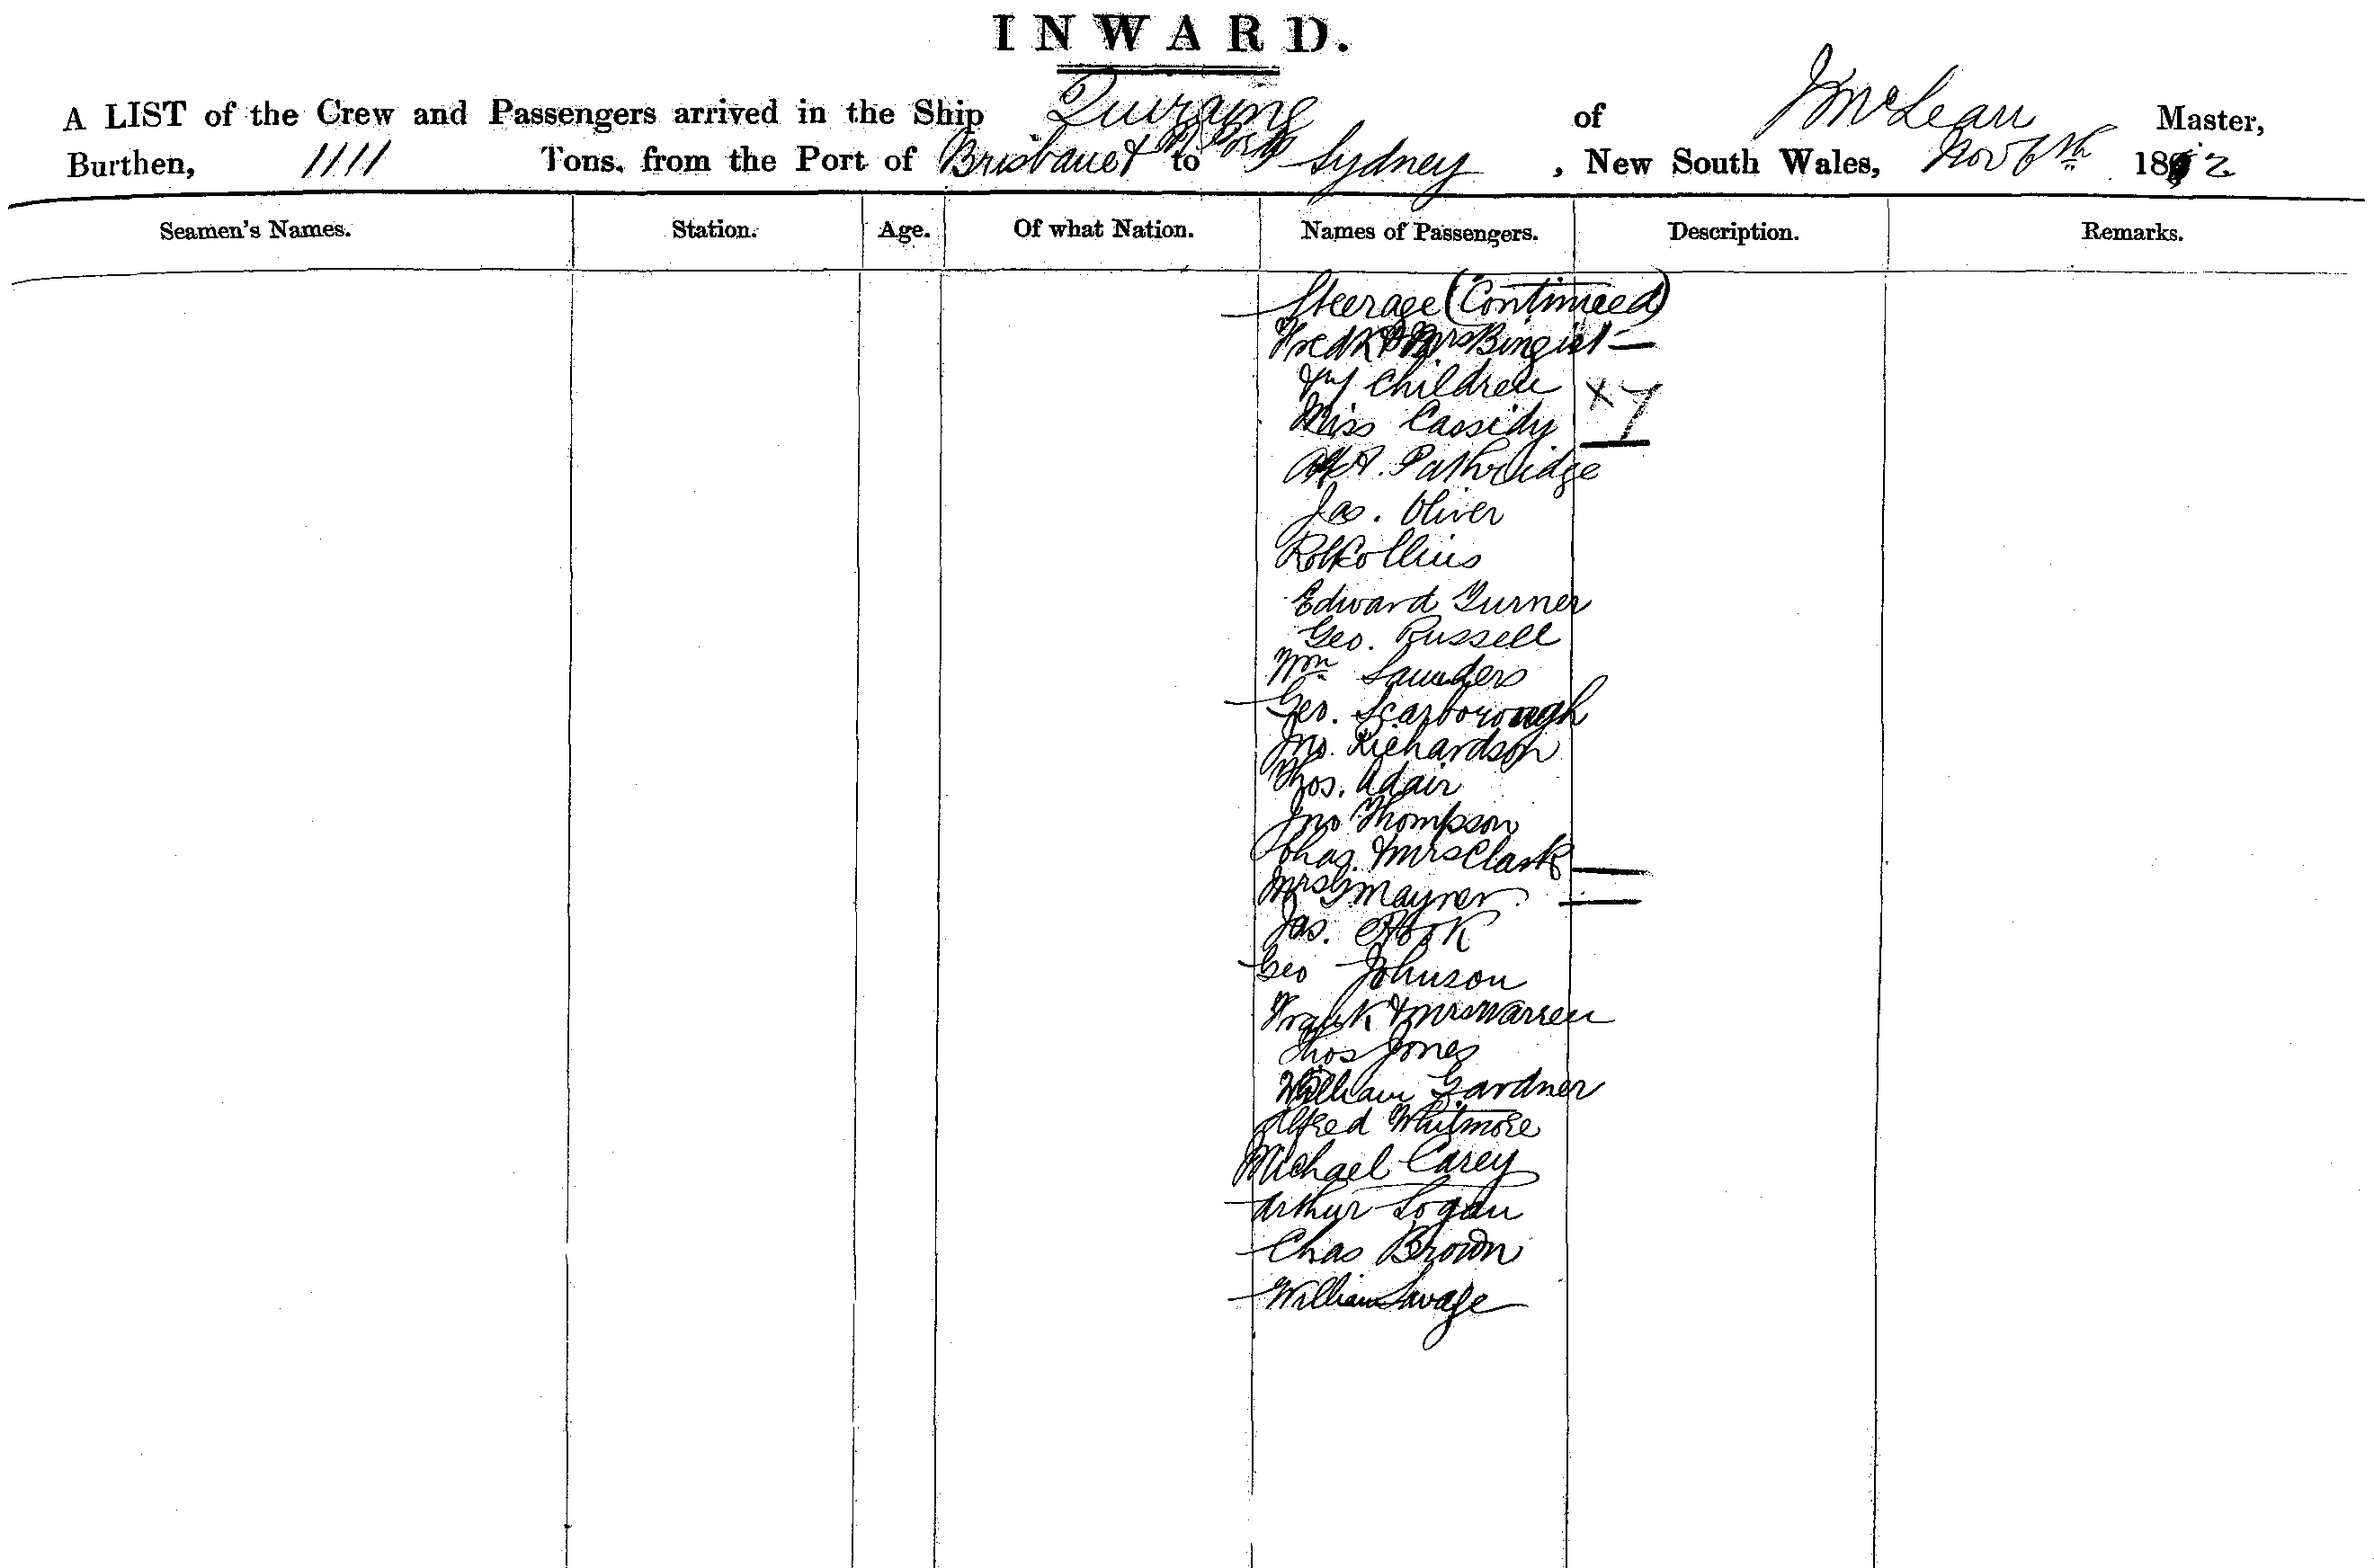 INWARD.
A LIST of the Crew and Passengers arrived in the Ship Quiraing of J McLean Master,
Burthen, 1111 Tons. from the Port of Brisbane & to Sydney , New South Wales, Nov 6th 1882
Seamen's Names. Station. Age. Of what Nation. Names of Passengers. Description. Remarks.
Steerage (Continued)
Fredk & Mrs —
Children x 7
Miss Cassidy
Pathridge
Jas. Oliver
Robt Collins
Edward Turner
Geo. Russell
Wm Saunders
Geo. Scarborough
Jno. Richardson
Thos. Adair
Jno Thompson
Chas. & Mrs Clark —
Mrs Mayner —
Jas.
Geo Johnson
Frank & Mrs Warren
Thos Jones
William Gardner
Alfred Whitmore
Michael Carey
Arthur Logan
Chas Brown
William Savage